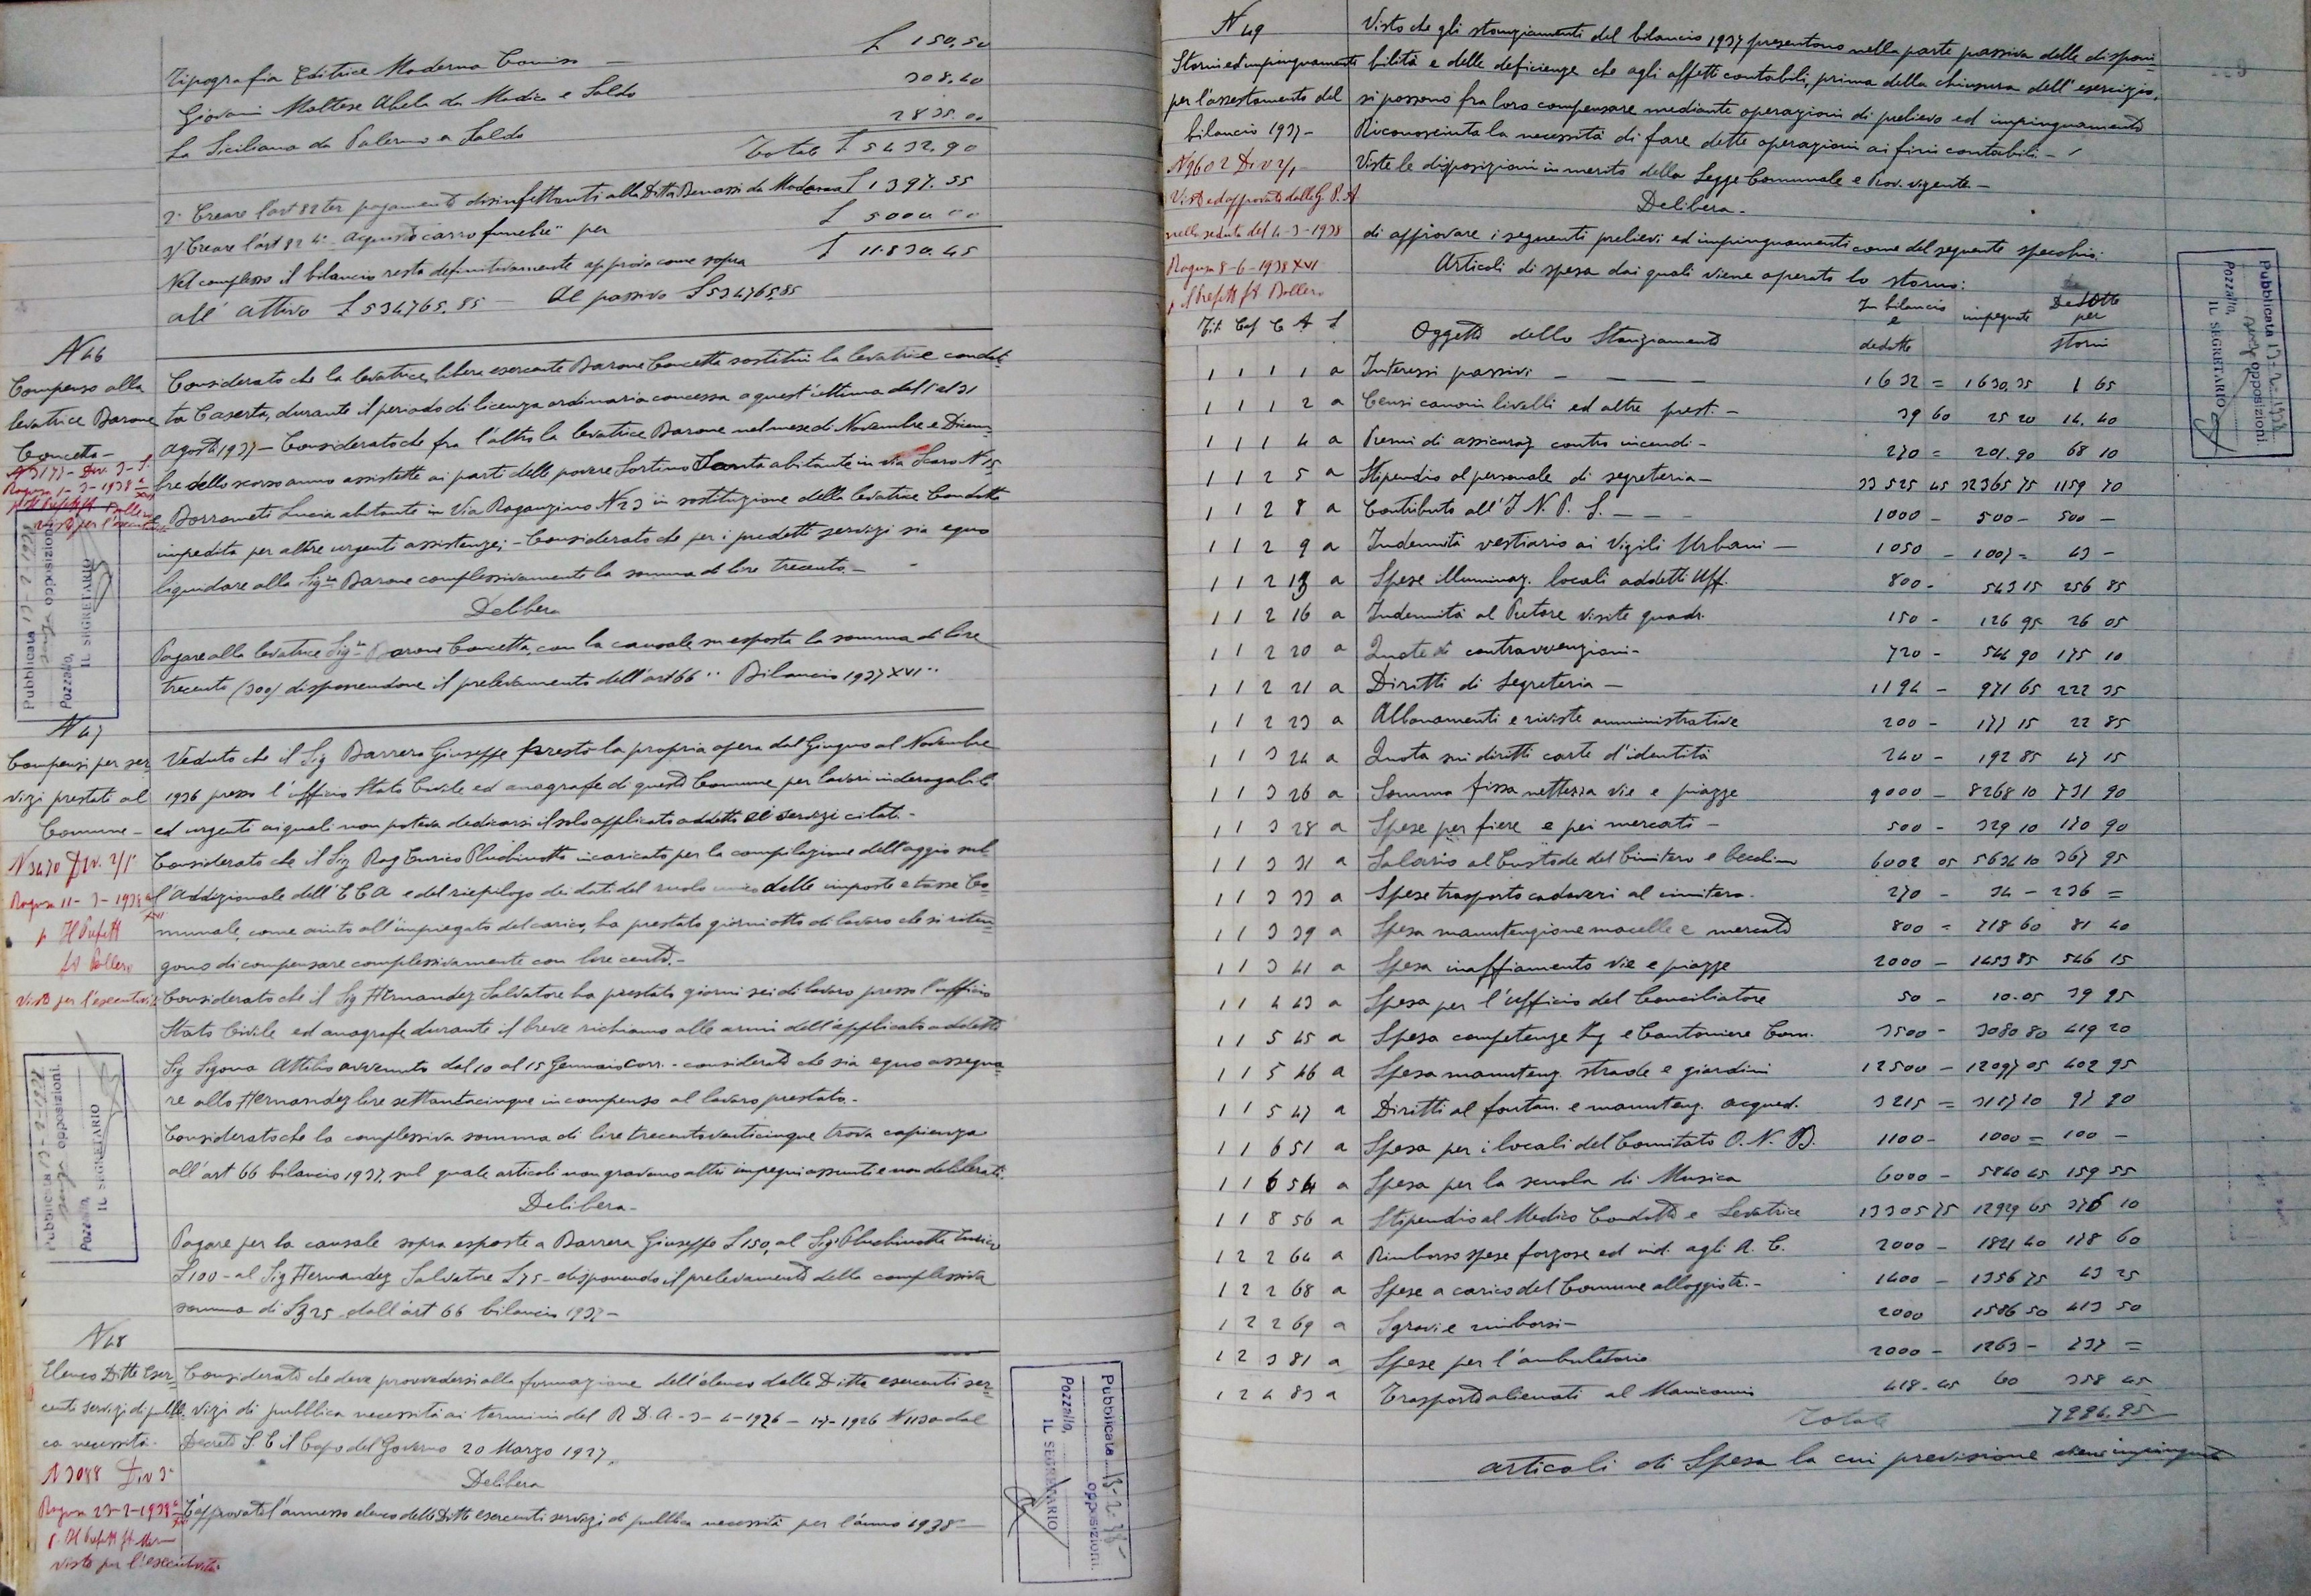 Tipografia Editrice Moderna Comiso — £ 150,50
Giovanni Maltese Abela da Modica e Saldo 308.40
La Siciliana da Palermo a Saldo 2835.00
Totale £ 5432.90
2° Creare l'art 82 ter pagamento disinfettanti alla Ditta Benassi da Modena £ 1397.55
3) Creare l'art 82 4° acquisto carro funebre" per £ 5000.00
£ 11.830.45
Nel complesso il bilancio resta definitivamente approva come sopra
all' attivo £ 534765.85 — Al passivo £ 534765,85
N 46
Compenso alla
levatrice Barone
Concetta —
N 3177 - Div. 3-S.
Ragusa 1-3-1938
Considerato che la levatrice libera esercente Barone Concetta sostituì la levatrice condot-
ta Caserta, durante il periodo di licenza ordinaria concessa a quest'ultima dal 1° al 31
Agosto 1937 — Considerato che fra l'altro la levatrice Barone nel mese di Novembre e Dicem-
bre dello scorso anno assistette ai parti delle povere Sortino Santa abitante in via Scaro N 15
e Borrometi Lucia abitante in Via Roganzino N 23 in sostituzione della levatrice Condotta
impedita per altre urgenti assistenze; - Considerato che per i predetti servizi sia equo
liquidare alla Sig.ra Barone complessivamente la somma di lire trecento. —
Delibera
Pagare alla levatrice Sig.ra Barone Concetta, con la causale su esposta la somma di lire
trecento (300) disponendone il prelevamento dell'art 66 " Bilancio 1937 XVI "
Pubblicata 13-2-1938
senza opposizioni
Pozzallo,
IL SEGRETARIO
N 47
Compensi per ser-
vizi prestati al
Comune —
N 3470 Div. 2/1
Ragusa 11-3-1938
p Il Prefetto
f.to Pollero
Visto per l'esecutività
Veduto che il Sig Barrera Giuseppe prestò la propria opera dal Giugno al Novembre
1936 presso l'ufficio Stato Civile ed anagrafe di questo Comune per lavori inderogabili
ed urgenti ai quali non poteva dedicarsi il solo applicato addetto ai servizi citati. -
Considerato che il Sig Rag Enrico Pluchinotta incaricato per la compilazione dell'aggio sul-
l'Addizionale dell'E C A e del riepilogo dei dati del ruolo unico delle imposte e tasse Co-
munale, come aiuto all'impiegato del carico, ha prestato giorni otto di lavoro che si riten-
gono di compensare complessivamente con lire cento. -
Considerato che il Sig Hernandez Salvatore ha prestato giorni sei di lavoro presso l'ufficio
Stato Civile ed anagrafe durante il breve richiamo alle armi dell'applicato addetto
Sig Sigona Attilio avvenuto dal 10 al 15 Gennaio corr. - considerato che sia equo assegna-
re allo Hernandez lire settantacinque in compenso al lavoro prestato. -
Considerato che la complessiva somma di lire trecentoventicinque trova capienza
all'art 66 bilancio 1937, sul quale articoli non gravano altri impegni assunti e non deliberati.
Delibera -
Pagare per la causale sopra esposte a Barrera Giuseppe £ 150, al Sig Pluchinotta Enrico
£ 100 - al Sig Hernandez Salvatore £ 75 - disponendo il prelevamento della complessiva
somma di £ 325 dall'art 66 bilancio 1937 —
Pubblicata 13-2-1938
senza opposizioni.
Pozzallo,
IL SEGRETARIO
N 48
Elenco Ditte Eser-
centi servizi di pubbli-
ca necessità.
N 3088 Div 3ª
Ragusa 23-2-1938
Visto per l'esecutività
Considerato che deve provvedersi alla formazione dell'elenco delle Ditte esercenti ser-
vizi di pubblica necessità ai termini del R D. A - 3 - 4 - 1926 - 1-7-1926 N 1130 dal
Decreto S. E il Capo del Governo 20 Marzo 1927.
Delibera
È approvato l'annesso elenco delle Ditte esercenti servizi di pubblica necessità per l'anno 1938 —
Pubblicata 13-2-38
opposizioni.
Pozzallo,
IL SEGRETARIO
N 49
Storni ed impinguamenti
per l'assestamento del
bilancio 1937 -
N 9602 Div 2/1
Visto ed approvato dalla G. P. A.
nella seduta del 4-3-1938
Ragusa 8-6-1938 XVI
p Il Prefetto f.to Pollero
Visto che gli stanziamenti del bilancio 1937 presentano nella parte passiva delle disponi-
bilità e delle deficienze che agli effetti contabili, prima della chiusura dell'esercizio,
si possono fra loro compensare mediante operazioni di prelievo ed impinguamento
Riconosciuta la necessità di fare dette operazioni ai fini contabili —
Viste le disposizioni in merito della Legge Comunale e Prov. vigente. —
Delibera -
di approvare i seguenti prelievi ed impinguamenti come del seguente specchio:
Articoli di spesa dai quali viene operato lo storno:
Tit. Cap C A L Oggetto dello Stanziamento In bilancio e dedotte impegnate Dedotte per storni
1 1 1 1 a Interessi passivi — 1632 = 1630,35 1 65
1 1 1 2 a Censi canoni livelli ed altre prest. — 39 60 25 20 14.40
1 1 1 4 a Premi di assicuraz contro incendi - 270 = 201.90 68 10
1 1 2 5 a Stipendio al personale di segreteria — 33525 45 32365 75 1159 70
1 1 2 8 a Contributo all'I N. P. S. — 1000 - 500 - 500 -
1 1 2 9 a Indennità vestiario ai Vigili Urbani — 1050 - 1007 = 43 -
1 1 2 13 a Spese illuminaz. locali addetti Uff. 800 - 543 15 256 85
1 1 2 16 a Indennità al Pretore visite quadr. 150 - 126 95 26 05
1 1 2 20 a Quote di contravvenzioni - 720 - 544 90 175 10
1 1 2 21 a Diritti di Segreteria — 1194 - 971 65 222 35
1 1 2 23 a Abbonamenti e riviste amministrative 200 - 177 15 22 85
1 1 3 24 a Quota sui diritti carte d'identità 240 - 192 85 47 15
1 1 3 26 a Somma fissa nettezza vie e piazze 9000 - 8268 10 731 90
1 1 3 28 a Spese per fiere e pei mercati — 500 - 329 10 170 90
1 1 3 31 a Salario al Custode del Cimitero e becchino 6002 05 5634 10 367 95
1 1 3 33 a Spese trasporto cadaveri al cimitero. 270 - 34 - 236 =
1 1 3 39 a Spesa manutenzione macello e mercato 800 = 718 60 81 40
1 1 3 41 a Spesa inaffiamento vie e piazze 2000 - 1453 85 546 15
1 1 4 43 a Spesa per l'ufficio del Conciliatore 50 - 10.05 39 95
1 1 5 45 a Spesa competenze Ing e Cantoniere Com. 3500 - 3080 80 419 20
1 1 5 46 a Spesa manutenz. strade e giardini 12500 - 12097 05 402 95
1 1 5 47 a Diritti al fontan. e manutenz. acqued. 3215 = 3117 10 97 90
1 1 6 51 a Spesa per i locali del Comitato O. N. B. 1100 - 1000 = 100 -
1 1 6 54 a Spesa per la scuola di Musica 6000 - 5840 45 159 55
1 1 8 56 a Stipendio al Medico Condotto e Levatrice 13305 75 12929 65 376 10
1 2 2 64 a Rimborso spese forzose ed ind. agli A. C. 2000 - 1821 40 178 60
1 2 2 68 a Spese a carico del Comune alloggi ste. - 1400 - 1356 75 43 25
1 2 2 69 a Sgravi e rimborsi — 2000 1586 50 413 50
1 2 3 81 a Spese per l'ambulatorio 2000 - 1263 - 737 =
1 2 4 83 a Trasporto alienati al Manicomio 418.45 60 358 45
Totale 7986.95
Articoli di Spesa la cui previsione viene impinguata
Pubblicata 13-2-1938
senza opposizioni
Pozzallo,
IL SEGRETARIO